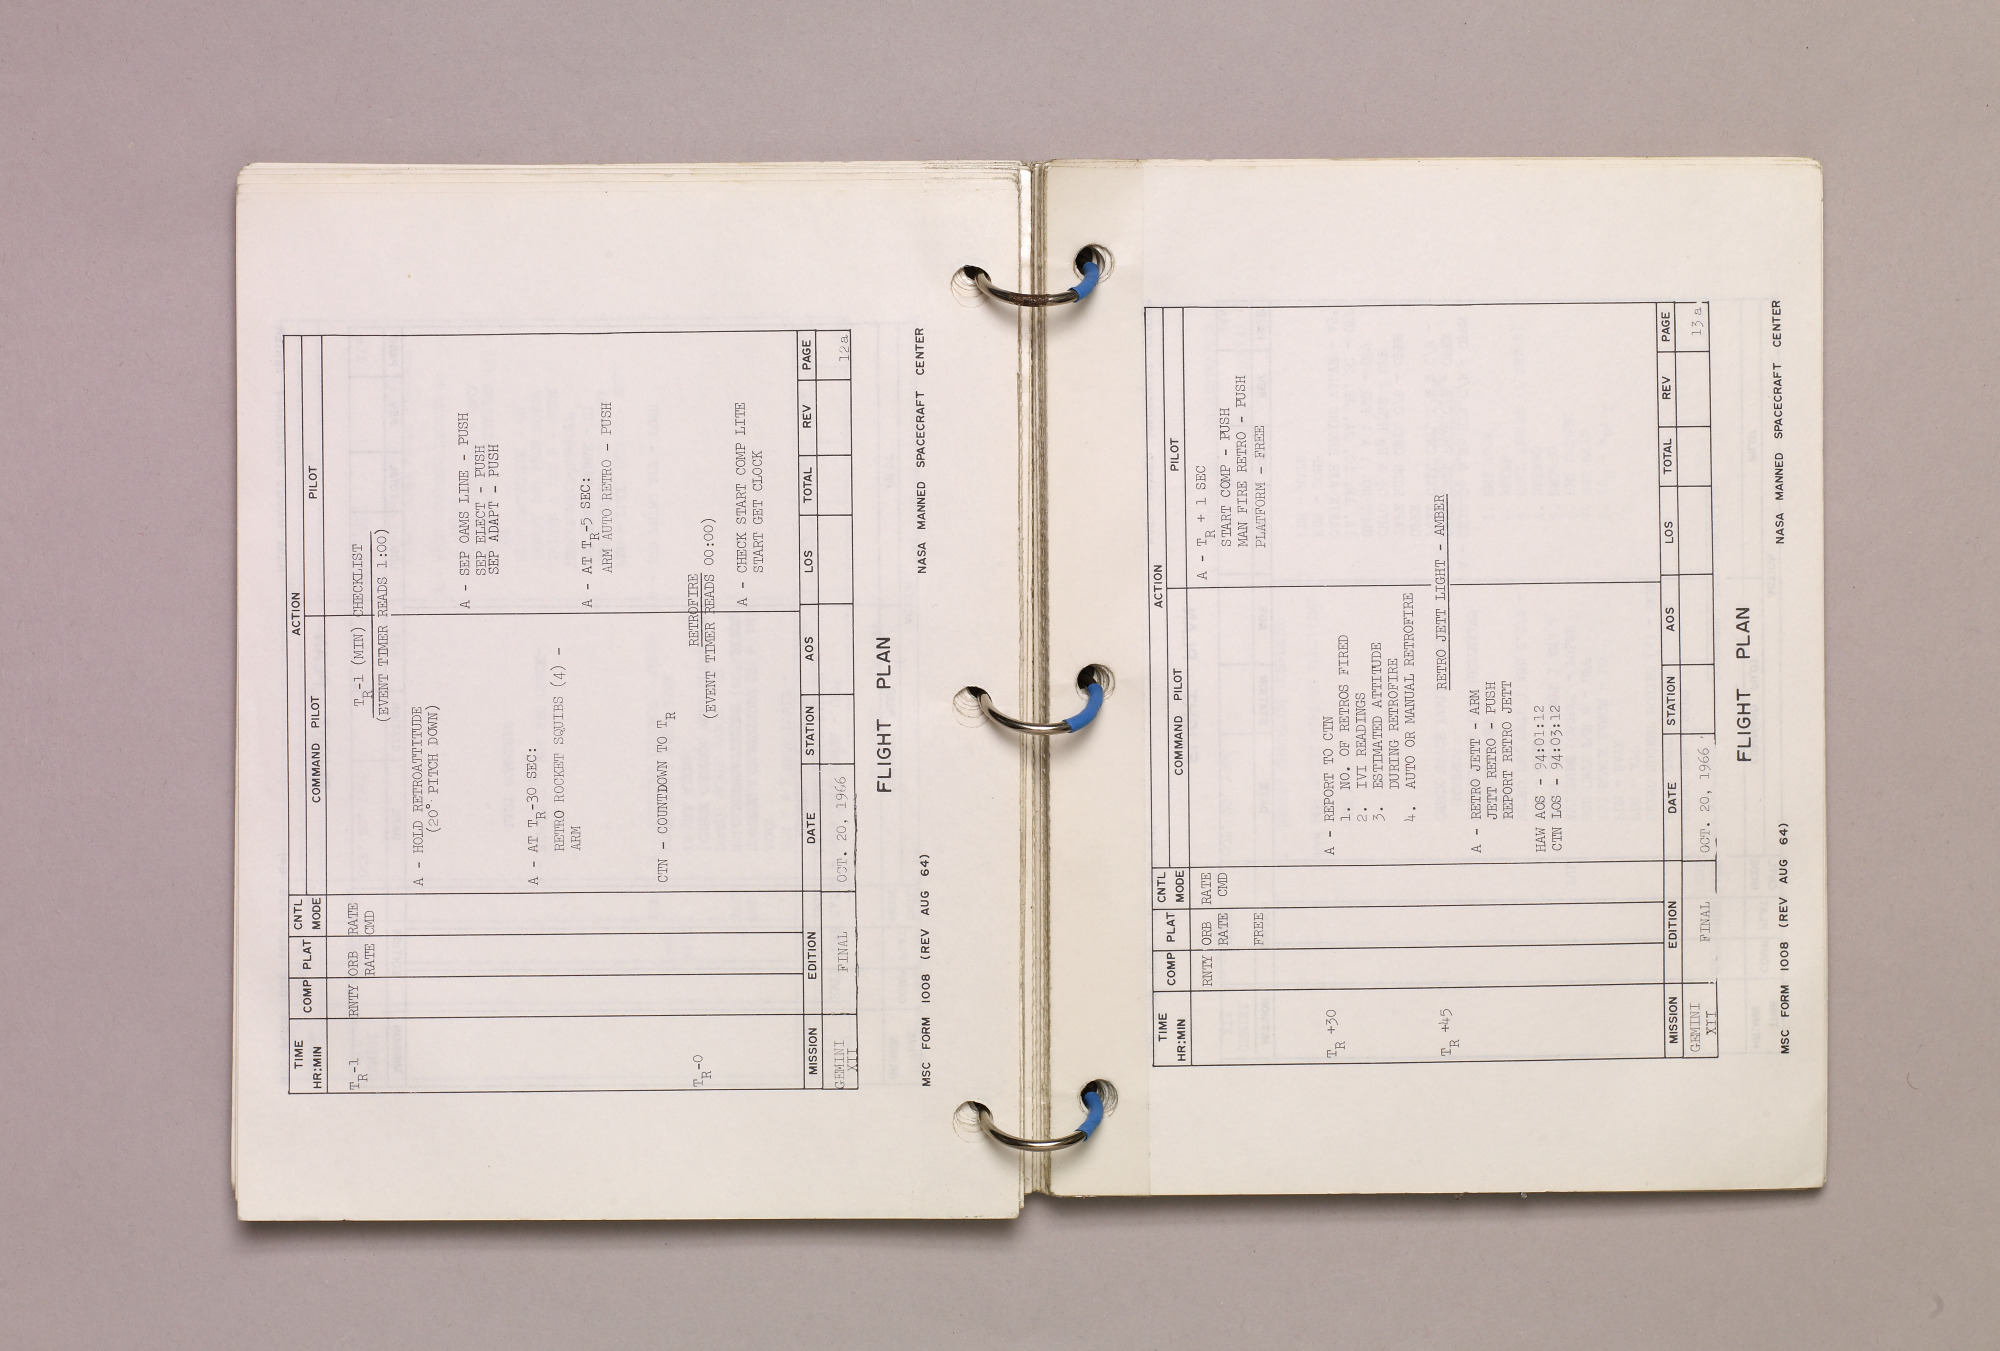 ACTION
TIME HR:MIN COMP PLAT CNTL MODE COMMAND PILOT PILOT
T_R-1 RNTY ORB RATE RATE CMD
T_R-1 (MIN) CHECKLIST
(EVENT TIMER READS 1:00)
A - HOLD RETROATTITUDE
(20° PITCH DOWN)
A - SEP OAMS LINE - PUSH
SEP ELECT - PUSH
SEP ADAPT - PUSH
A - AT T_R-30 SEC:
RETRO ROCKET SQUIBS (4) -
ARM
A - AT T_R-5 SEC:
ARM AUTO RETRO - PUSH
CTN - COUNTDOWN TO T_R
T_R-0
RETROFIRE
(EVENT TIMER READS 00:00)
A - CHECK START COMP LITE
START GET CLOCK
MISSION EDITION DATE STATION AOS LOS TOTAL REV PAGE
GEMINI XII FINAL OCT. 20, 1966 12a
FLIGHT PLAN
MSC FORM 1008 (REV AUG 64) NASA MANNED SPACECRAFT CENTER
ACTION
TIME HR:MIN COMP PLAT CNTL MODE COMMAND PILOT PILOT
RNTY ORB RATE RATE CMD
FREE
A - T_R + 1 SEC
START COMP - PUSH
MAN FIRE RETRO - PUSH
PLATFORM - FREE
T_R +30
A - REPORT TO CTN
1. NO. OF RETROS FIRED
2. IVI READINGS
3. ESTIMATED ATTITUDE
DURING RETROFIRE
4. AUTO OR MANUAL RETROFIRE
T_R +45
RETRO JETT LIGHT - AMBER
A - RETRO JETT - ARM
JETT RETRO - PUSH
REPORT RETRO JETT
HAW AOS - 94:01:12
CTN LOS - 94:03:12
MISSION EDITION DATE STATION AOS LOS TOTAL REV PAGE
GEMINI XII FINAL OCT. 20, 1966 13a
FLIGHT PLAN
MSC FORM 1008 (REV AUG 64) NASA MANNED SPACECRAFT CENTER